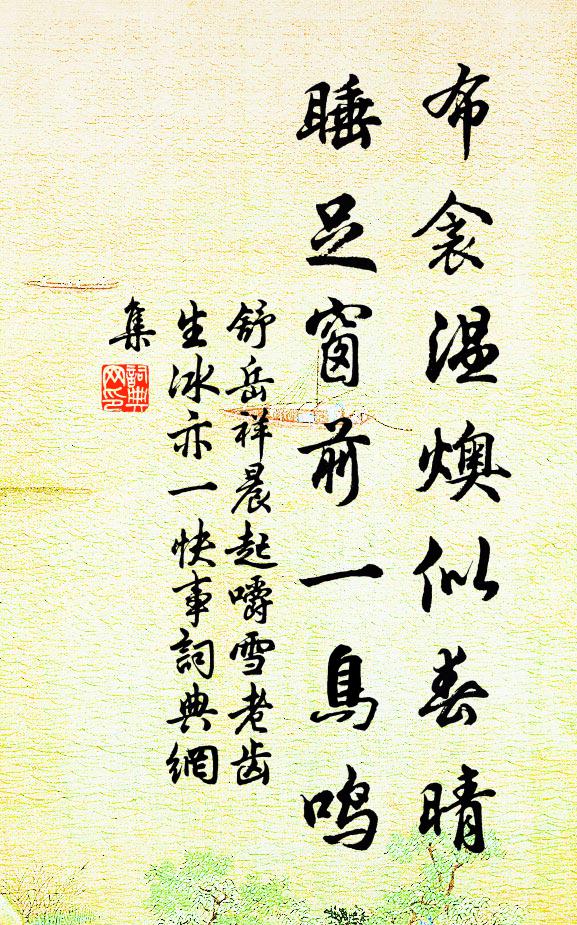 布衾温燠似春晴
睡足窗前一鳥鳴
舒岳祥晨起嚼雪老齿
生冰亦一快事詞典網
集
詞典
网印